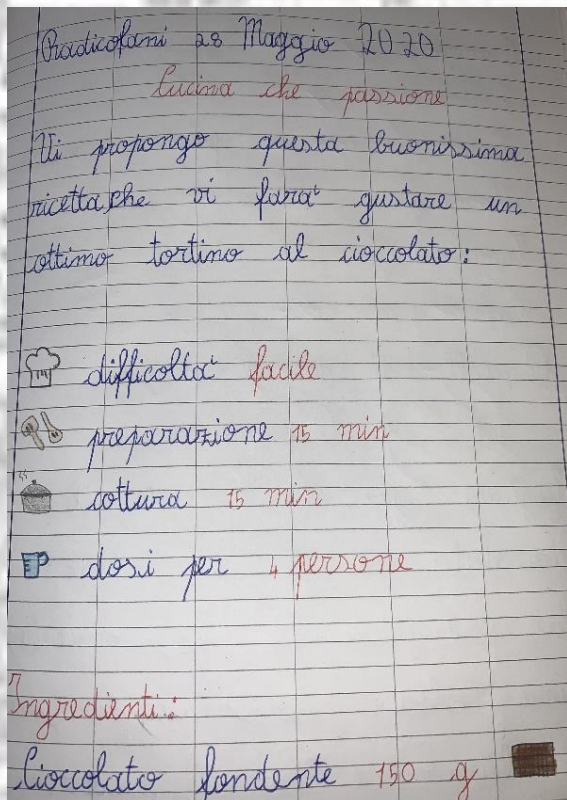 Radicofani 28 Maggio 2020
Cucina che passione
Vi propongo questa buonissima
ricetta, che vi farà gustare un
ottimo tortino al cioccolato:
difficoltà facile
preparazione 15 min
cottura 15 min
dosi per 4 persone
Ingredienti:
Cioccolato fondente 150 g